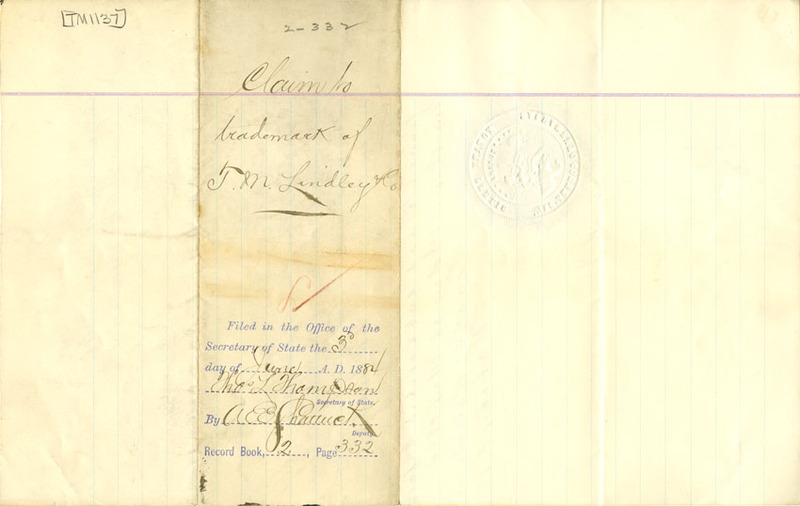 [TM1137]
2-332
Claim to
trademark of
T. M. Lindley & Co
Filed in the Office of the
Secretary of State the 3d
day of June A. D. 1884
Thos L Thompson
Secretary of State.
By A E
Deputy.
Record Book, 2, Page 332